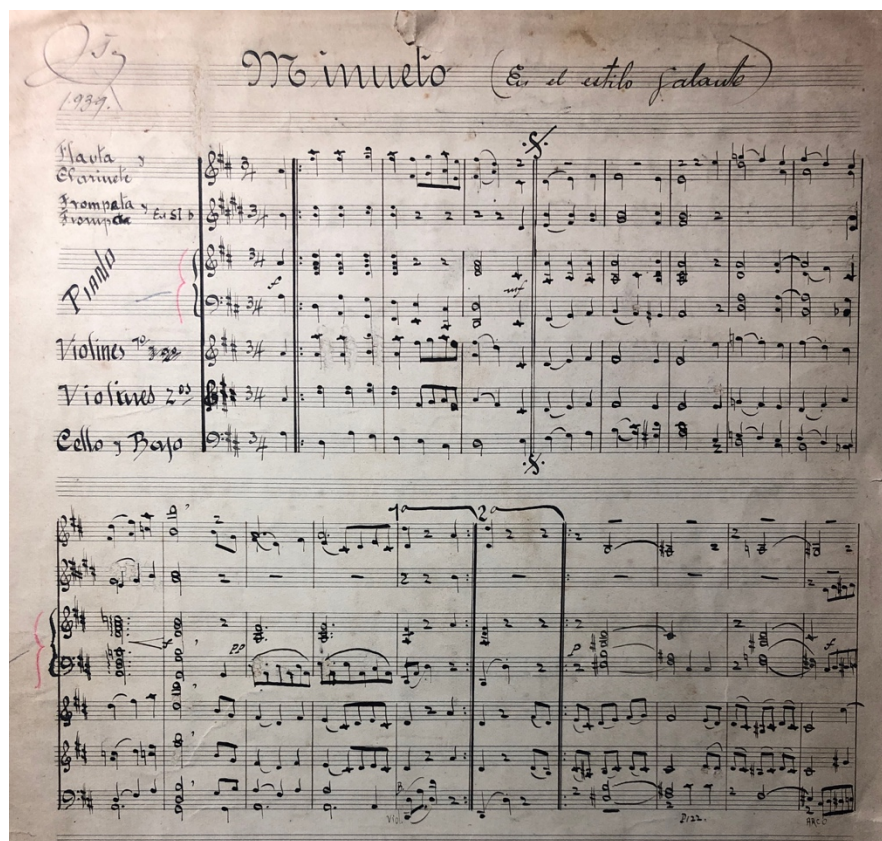 1939.
Minueto (En el estilo galante)
Flauta y
Clarinete
Trompeta y
Trompeta En SI b
PIANO
Violines 1os
Violines 2os
Cello y Bajo
3/4
3/4
3/4
3/4
3/4
3/4
3/4
f
mf
1a 2a
f
pp
p
f
Pizz.
ARCO